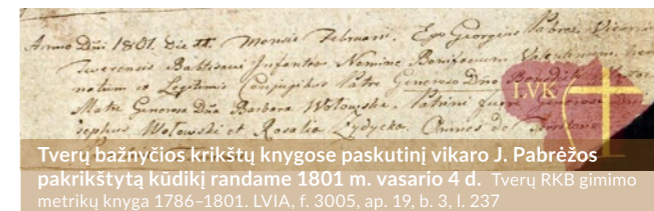 Anno Dni 1801. Die II. Mensis Februarii. Ego Georgius Pabrez Vicarius
Tverensis Baptisavi Infantem Nomine Bonifacium Valentinum
natum ex Legitimis Conjugibus Patre Generoso Dno
Matre Generosa Dna Barbara Wołowska. Patrini fuere Generosus Dnus
sephus Wołowski et Rosalia Zydycka. Omnes de
LVK
Tverų bažnyčios krikštų knygose paskutinį vikaro J. Pabrėžos
pakrikštytą kūdikį randame 1801 m. vasario 4 d. Tverų RKB gimimo
metrikų knyga 1786–1801. LVIA, f. 3005, ap. 19, b. 3, l. 237